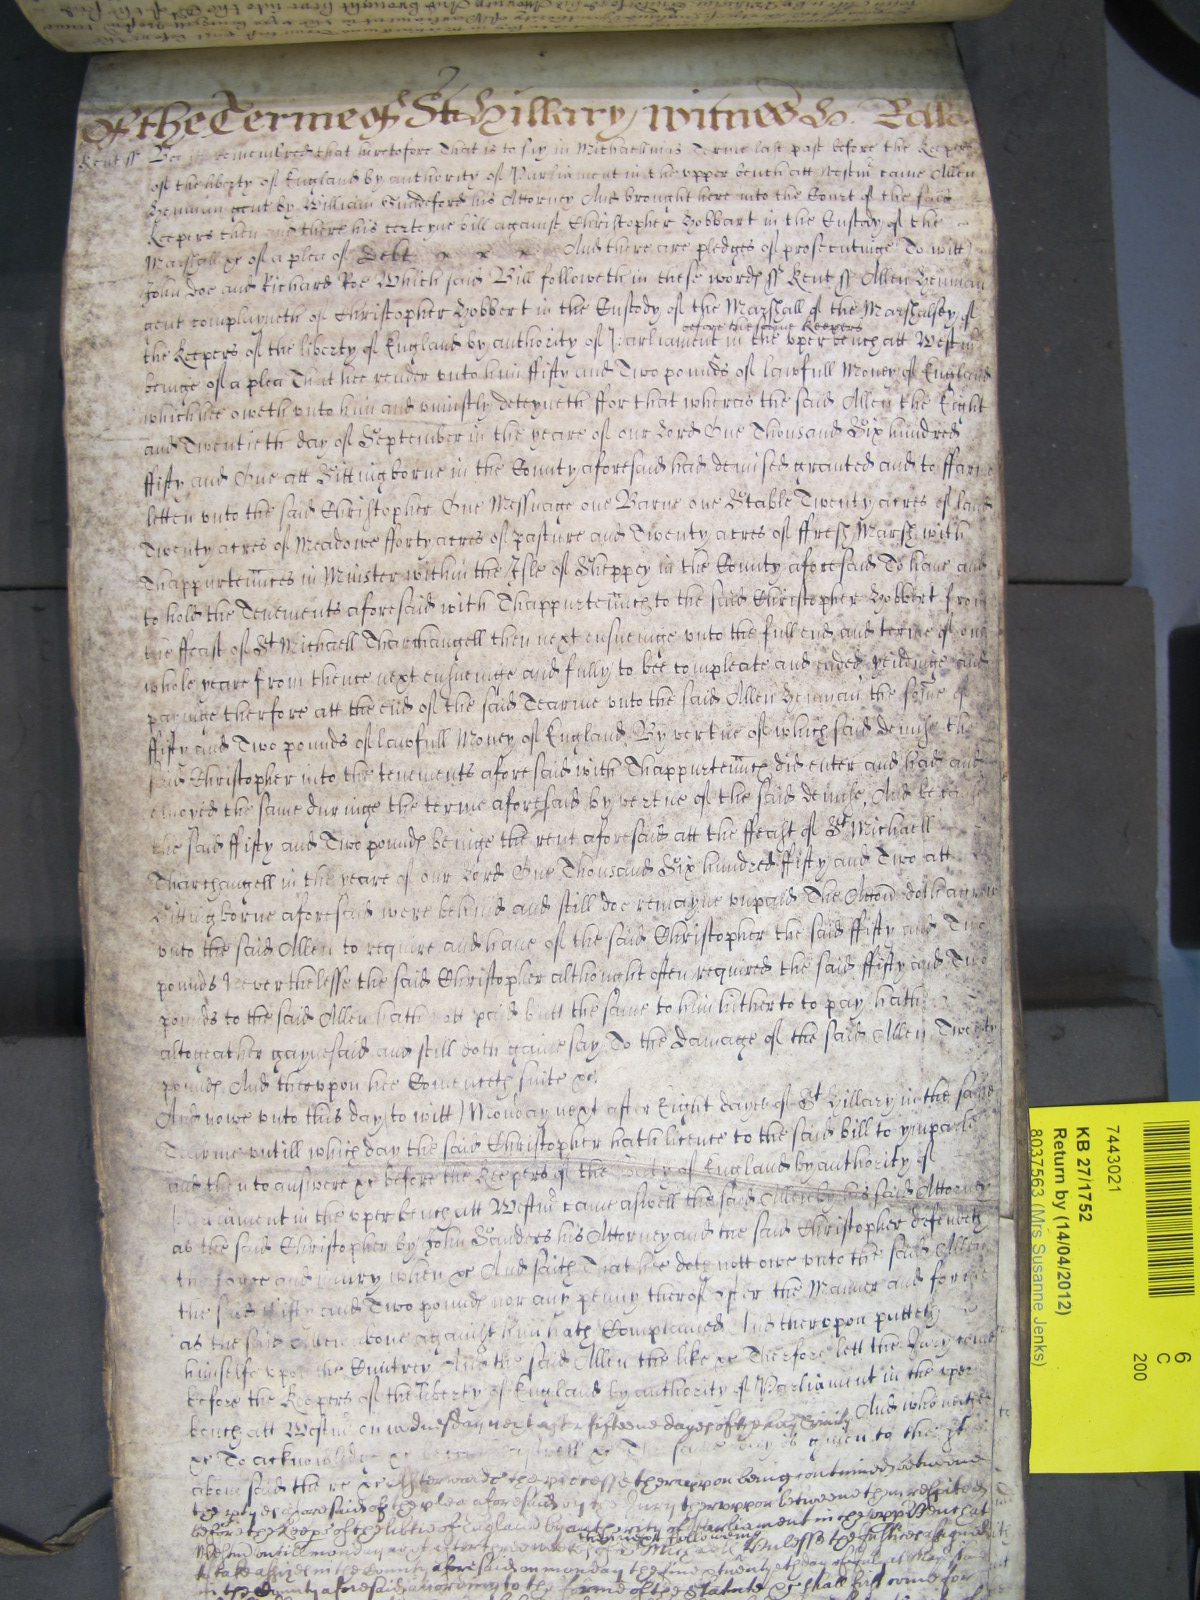 Of the Terme of St Hillary witnes
Kent ss Bee it remembred that heretofore That is to say in Michaellmas Terme last past before the Keepers
of the liberty of England by authority of Parliament in the vpper bench att Westm came Allen
gent by William his Attorney And brought here into the Court of the said
Keepers then and there his certeyne bill against Christopher Hobbart in the Custody of the
Marshall &c of a plea of Debt And there are pledges of prosecutinge To witt
John Doe and Richard Roe Which said Bill followeth in these words ss Kent ss Allen
gent complayneth of Christopher Hobbert in the Custody of the Marshall of the Marshalsey of
before the same Keepers
the Keepers of the liberty of England by authority of Parliament in the vper bench att Westm
beinge of a plea That hee render vnto him ffifty and Two pounds of lawfull Money of England
which hee oweth vnto him and vniustly deteyneth ffor that whereas the said Allen the Eight
and Twentieth day of September in the yeare of our Lord One Thousand Six hundred
ffifty and One att Sittingborne in the County aforesaid had demised granted and to ffarme
letten vnto the said Christopher One Messuage one Barne one Stable Twenty acres of land
Twenty acres of Meadowe fforty acres of pasture and Twenty acres of ffresh Marsh with
Thappurtennces in Minister within the Isle of Sheppey in the County aforesaid To haue and
to hold the Tenements aforesaid with Thappurtennces to the said Christopher Hobbert from
the ffeast of St Michaell Tharchangell then next ensueinge vnto the full end and terme of one
whole yeare from thence next ensueinge and fully to bee compleate and ended yeildinge and
payinge therfore att the end of the said Tearme vnto the said Allen the sume of
ffifty and Two pounds of lawfull Money of England By vertue of which said demise the
said Christopher into the tenements aforesaid with Thappurtennces did enter and had and
enioyed the same duringe the terme aforesaid by vertue of the said demise And because
the said ffifty and Two pounds beinge the rent aforesaid att the ffeast of St Michaell
Tharchangell in the yeare of our Lord One Thousand Six hundred ffifty and Two att
Sittingborne aforesaid were behind and still doe remayne vnpaid The Accon doth accrew
vnto the said Allen to require and haue of the said Christopher the said ffifty and Two
pounds Neverthelesse the said Christopher althought often required the said ffifty and Two
pounds to the said Allen hath nott paid butt the same to him hitherto to pay hath
altogeather gaynesaid and still doth gainesay To the damage of the said Allen Twenty
pounds And therevpon hee bringeth suite &c
And nowe vnto this day to witt Monday next after Eight dayes of St Hillary in the same
Tearme vntill which day the said Christopher hath licence to the said bill to ymparle
and then to answere &c before the Keepers of the liberty of England by authority of
Parliament in the vper bench att Westm came aswell the said Allen by his said Attorney
as the said Christopher by John Sanders his Attorney and the said Christopher defendeth
the force and iniury when &c And saith That hee doth nott owe vnto the said Allen
the said ffifty and Two pounds nor any penny therof After the Manner and forme
as the said Allen aboue against him hath Complained And therevpon putteth
himselfe vpon the Cuntrey And the said Allen the like &c Therefore lett the Jury come
before the Keepers of the liberty of England by authority of Parliament in the vper
bench att Westm on wednesday next after fifteene dayes of the holy Trinity And who neither
&c To acknowledge &c because aswell &c The same day is given to the
said there &c Afterwards the processe therevpon being continued betweene
the partyes aforesaid of the plea aforesaid by the Jury therevpon betweene them respited
before the Keeps of the libtie of England by authority of Parliament in the vpp Bench at
then next following
Westm vntill monday of St Michaell Vnlesse the Justices assigned
to take assizes in the County aforesaid on monday the day of at
in the County aforesaid according to the forme of the Statute &c shall first come for
7443021
KB 27/1752
Return by (14/04/2012)
8037563 (Mrs Susanne Jenks)
6
C
200